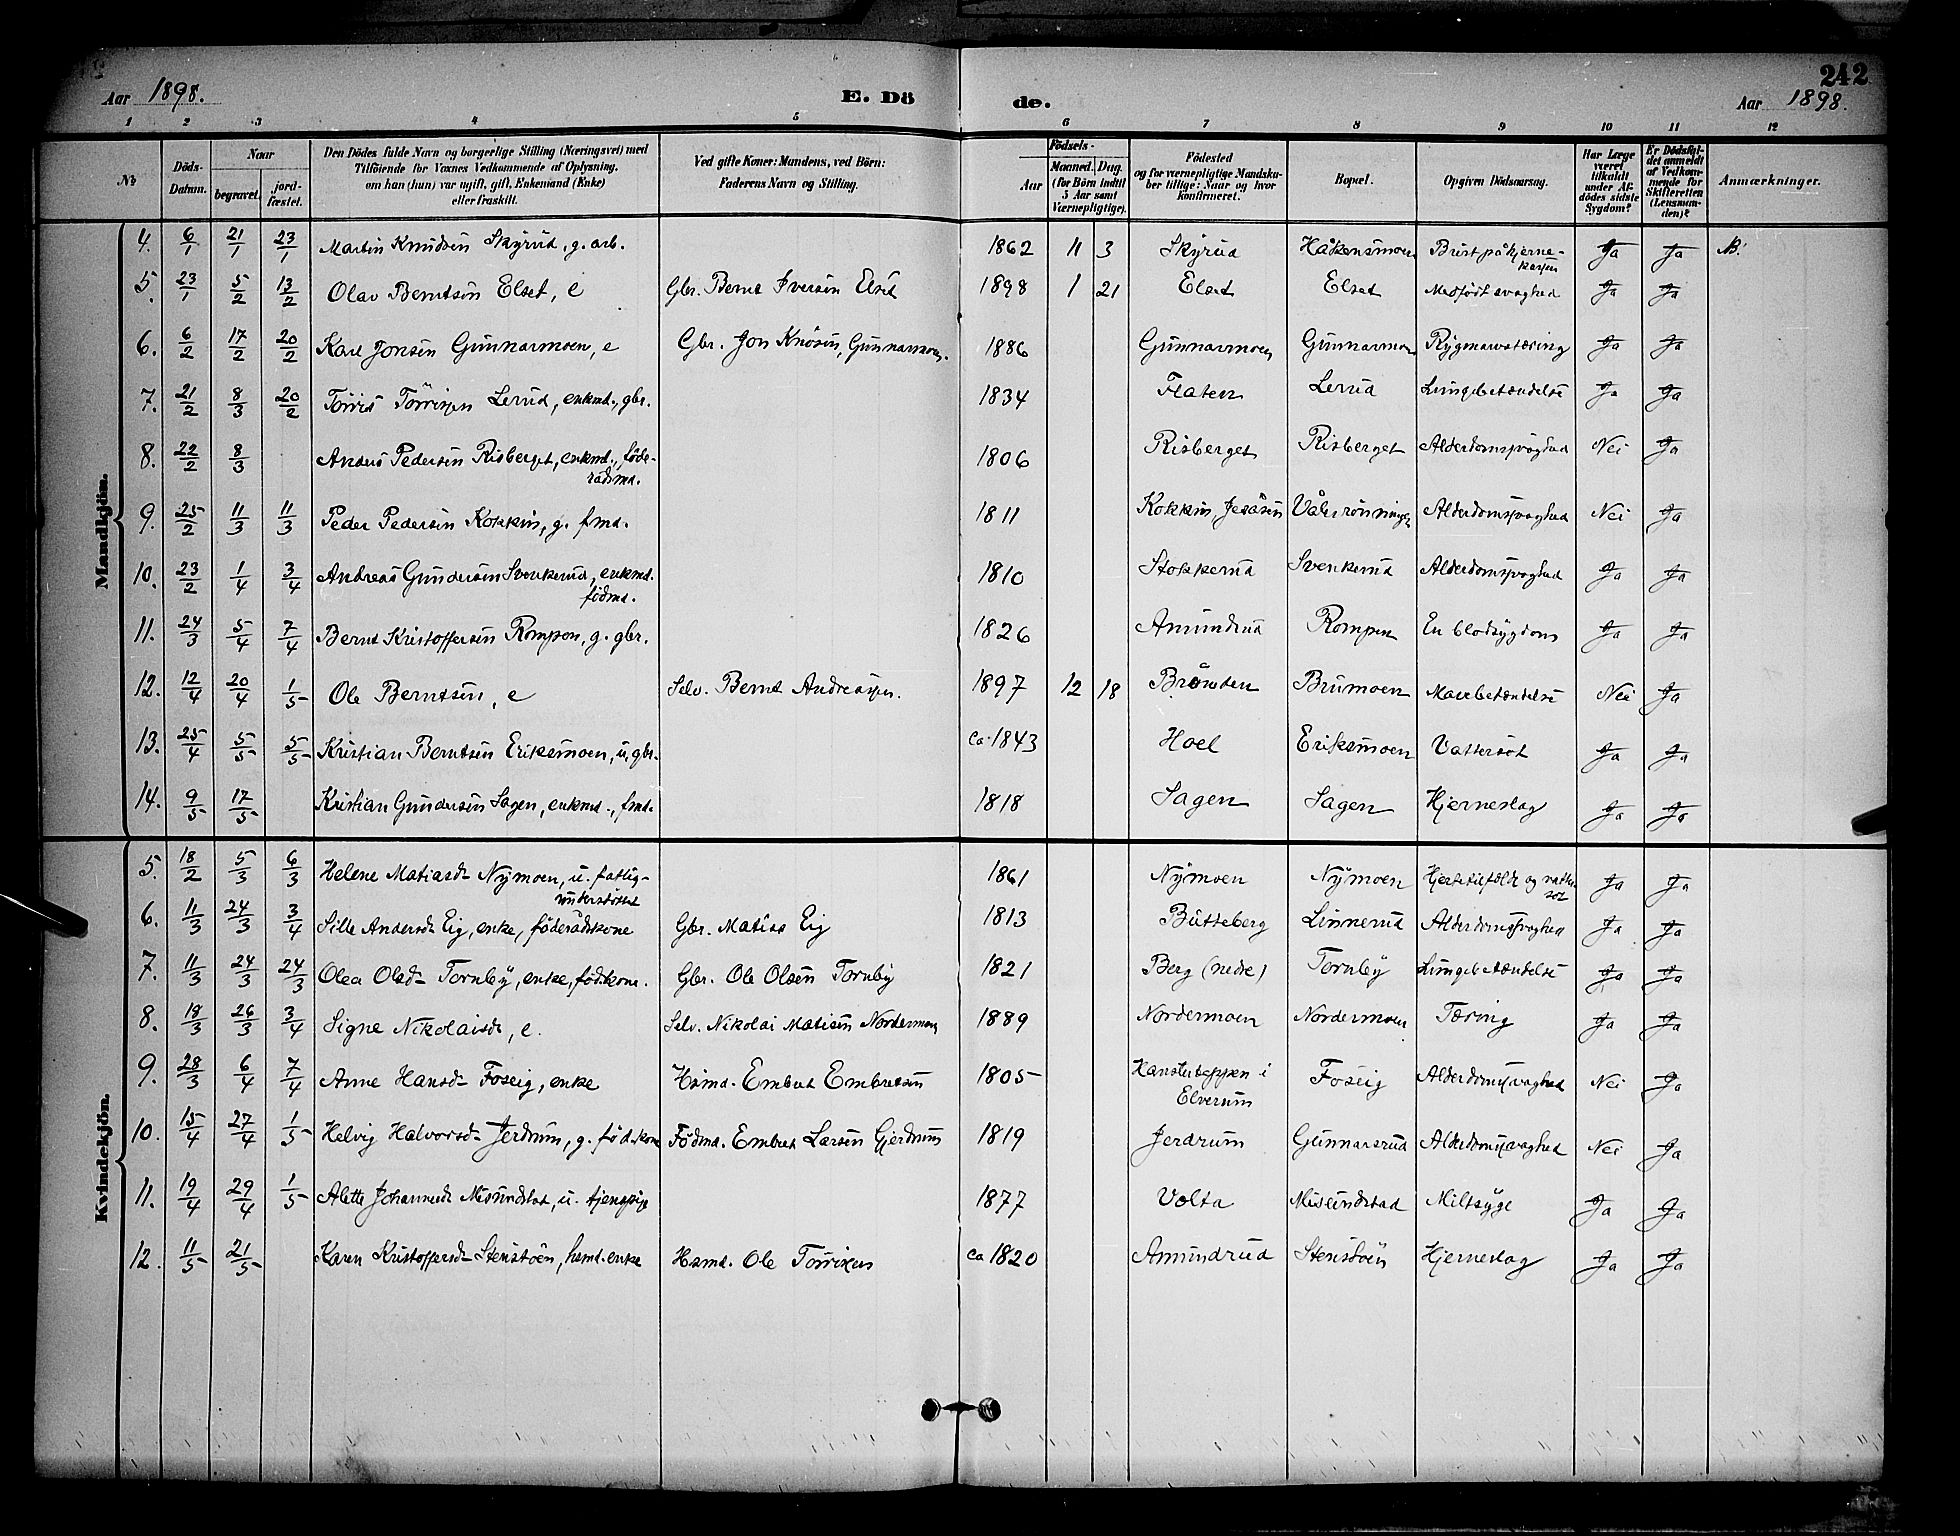 242
Aar 1898.
E. Dö
de.
Aar 1898.
1 2 3 4 5 6 7 8 9 10 11 12
№
Döds-Datum.
Naar
begravet.
jord-fæstet.
Den Dödes fulde Navn og borgerlige Stilling (Næringsvei) med
Tilföiende for Voxnes Vedkommende af Oplysning,
om han (hun) var ugift, gift, Enkemand (Enke)
eller fraskilt.
Ved gifte Koner: Mandens, ved Börn:
Faderens Navn og Stilling.
Födsels-
Aar
Maaned. Dag.
(for Börn indtil
5 Aar samt
Værnepligtige).
Födested
og for værnepligtige Mandsku-
ber tillige: Naar og hvor
konfirmeret.
Bopæl.
Opgiven Dödsaarsag.
Har Læge
været
tilkaldt
under Af-
dödes sidste
Sygdom?
Er Dödsfal-
det anmeldt
af Vedkom-
mende for
Skifteretten
(Lensman-
den)?
Anmærkninger.
Mandkjön.
4. 6/1 21/1 23/1 Martin Knudsen Skyrud, g. arb. 1862 11 3 Skyrud Håkensmoen Brist på hjerne- Ja Ja
5. 23/1 5/2 13/2 Olav Berntsen Elset, e Gbr. Bernt Iversen Elset 1898 1 21 Elset Elset Medfödt svaghed Ja Ja
6. 6/2 17/2 20/2 Karl Jonsen Gunnarmoen, e Gbr. Jon Knösen, Gunnarmoen. 1886 Gunnarmoen Gunnarmoen Rygmarvstæring Ja Ja
7. 21/2 8/3 20/2 Törris Törrisen Lerud, enkmd., gbr. 1834 Flaten Lerud Lungebetændelse Ja Ja
8. 22/2 8/3 Anders Pedersen Risberget, enkmd., föde-
rådsmd. 1806 Risberget Risberget Alderdomssvaghed Nei Ja
9. 25/2 11/3 11/3 Peder Pedersen Kokkin, g. fmd. 1811 Kokkin, Jesåsen Vålsrönningen Alderdomssvaghed Nei Ja
10. 23/2 1/4 3/4 Andreas Gundersen Svenkerud, enkmd.
födmd. 1810 Stokkerud Svenkerud Alderdomssvaghed Ja Ja
11. 24/3 5/4 7/4 Bernt Kristoffersen Rompen, g. gbr. 1826 Amundrud Rompen En blodsygdom Ja Ja
12. 12/4 20/4 1/5 Ole Berntsen, e Selv. Bernt Andreassen. 1897 12 18 Bronken Brumoen Mavebetændelse Nei Ja
13. 25/4 5/5 5/5 Kristian Berntsen Eriksmoen, u, gbr. ca. 1843 Hoel Eriksmoen Vattersot Ja Ja
14. 9/5 17/5 Kristian Gundersen Sagen, enkmd., fmd. 1818 Sagen Sagen Hjerneslag Ja Ja
Kvindekjön.
5. 18/2 5/3 6/3 Helene Matiasd. Nymoen, u. fattig-
understöttet 1861 Nymoen Nymoen Hjertetilfælde og vatter-
sot Ja Ja
6. 11/3 24/3 3/4 Sille Andersd. Eig, enke, föderådskone Gbr. Matias Eig 1813 Butteberg Linnerud Alderdomssvaghed Ja Ja
7. 11/3 24/3 24/3 Olea Olsd. Tornby, enke, föd.kone. Gbr. Ole Olsen Tornby 1821 Berg (nedre) Tornby Lungebetændelse Ja Ja
8. 18/3 26/3 3/4 Signe Nikolaisd., e. Selv. Nikolai Matisen Nordermoen 1889 Nordermoen Nordermoen Tæring Ja Ja
9. 28/3 6/4 7/4 Anne Hansd. Foseig, enke Hsmd. Embret Embretsen 1805 i
Elverum Foseig Alderdomssvaghed Nei Ja
10. 15/4 27/4 1/5 Helvig Halvorsd. Jerdrum, g. föd.kone Födmd. Embret Larsen Gjerdrum 1819 Jerdrum Gunnarsrud Alderdomssvaghed Nei Ja
11. 19/4 29/4 1/5 Alette Johannesd. Misundstad, u. tjenepige 1877 Volta Misundstad Miltsyge Ja Ja
12. 11/5 21/5 Karen Kristoffersd. Stenstöen, hsmd. enke Hsmd. Ole Törrisen ca 1820 Amundrud Stenstöen Hjerneslag Ja Ja